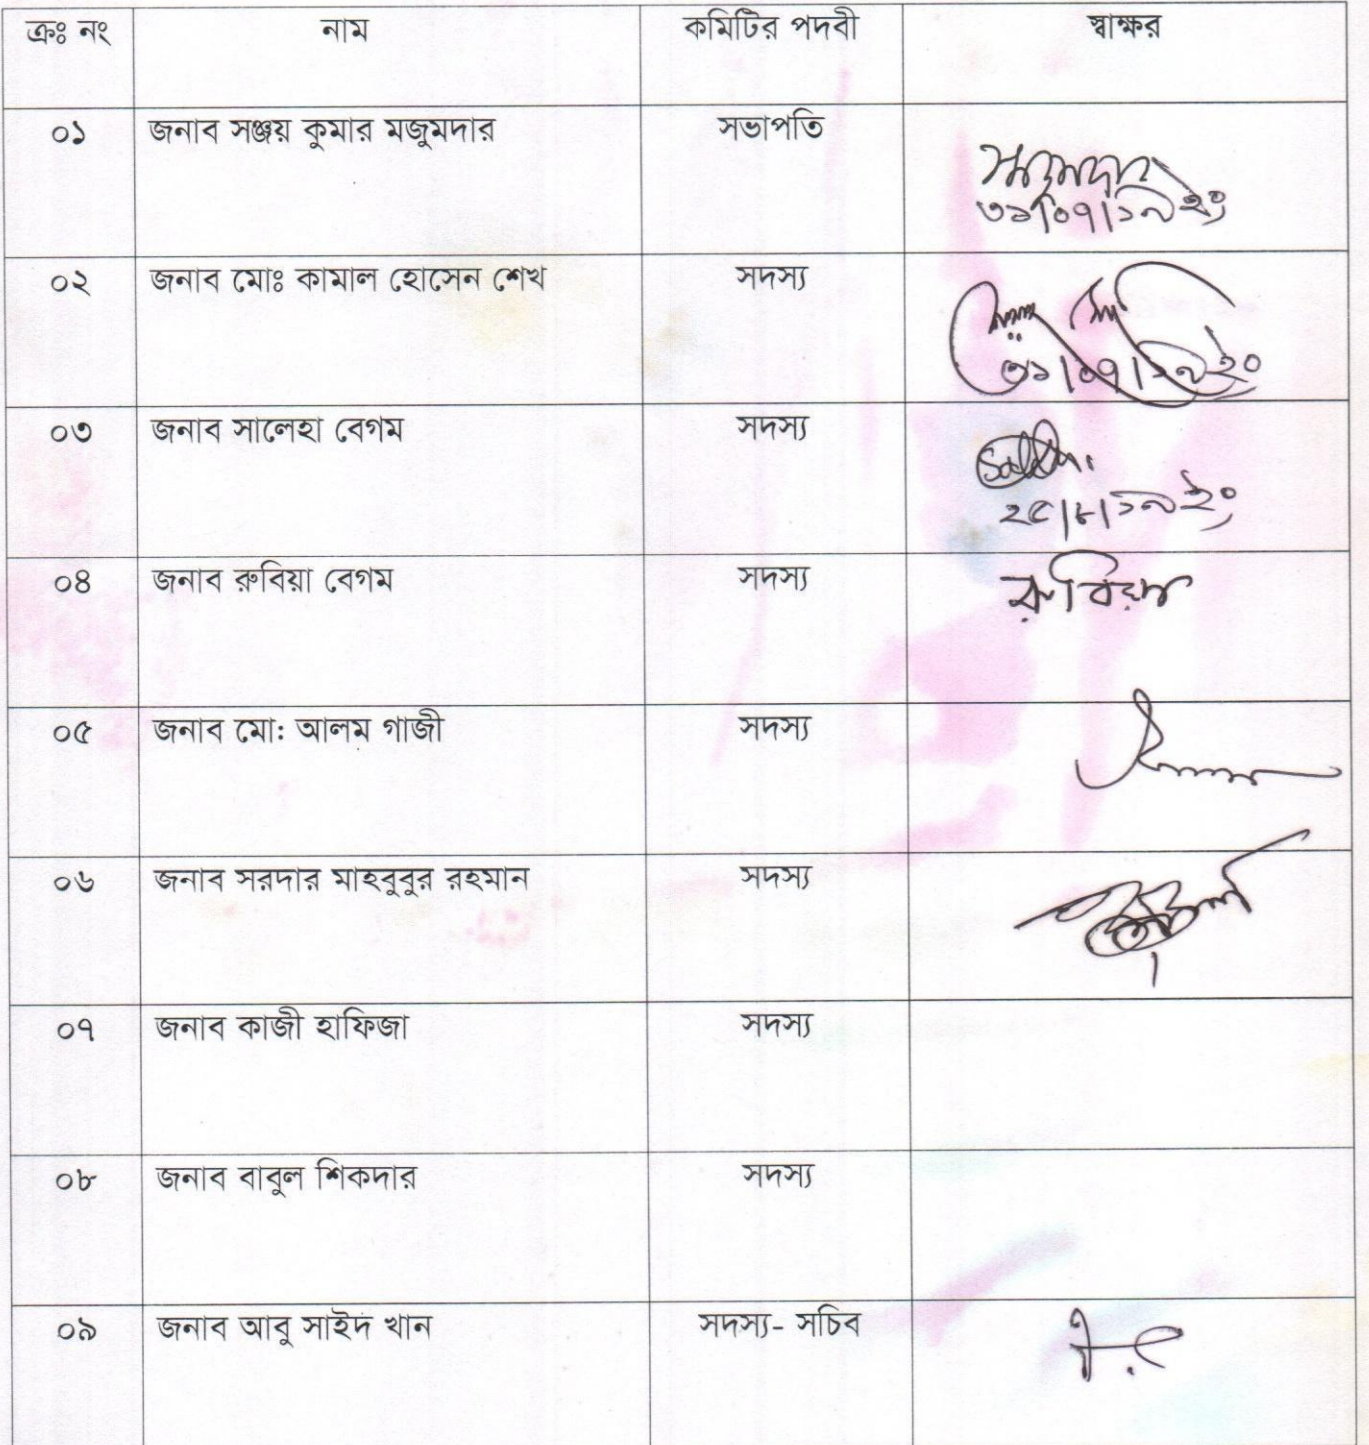 ক্রঃ নং নাম কমিটির পদবী স্বাক্ষর
০১ জনাব সঞ্জয় কুমার মজুমদার সভাপতি
৩১|০৭|১৯ ইং
০২ জনাব মোঃ কামাল হোসেন শেখ সদস্য
৩১|০৭|১৯ ইং
০৩ জনাব সালেহা বেগম সদস্য
২৫|৮|১৯ ইং
০৪ জনাব রুবিয়া বেগম সদস্য রুবিয়া
০৫ জনাব মো: আলম গাজী সদস্য
০৬ জনাব সরদার মাহবুবুর রহমান সদস্য
০৭ জনাব কাজী হাফিজা সদস্য
০৮ জনাব বাবুল শিকদার সদস্য
০৯ জনাব আবু সাইদ খান সদস্য- সচিব